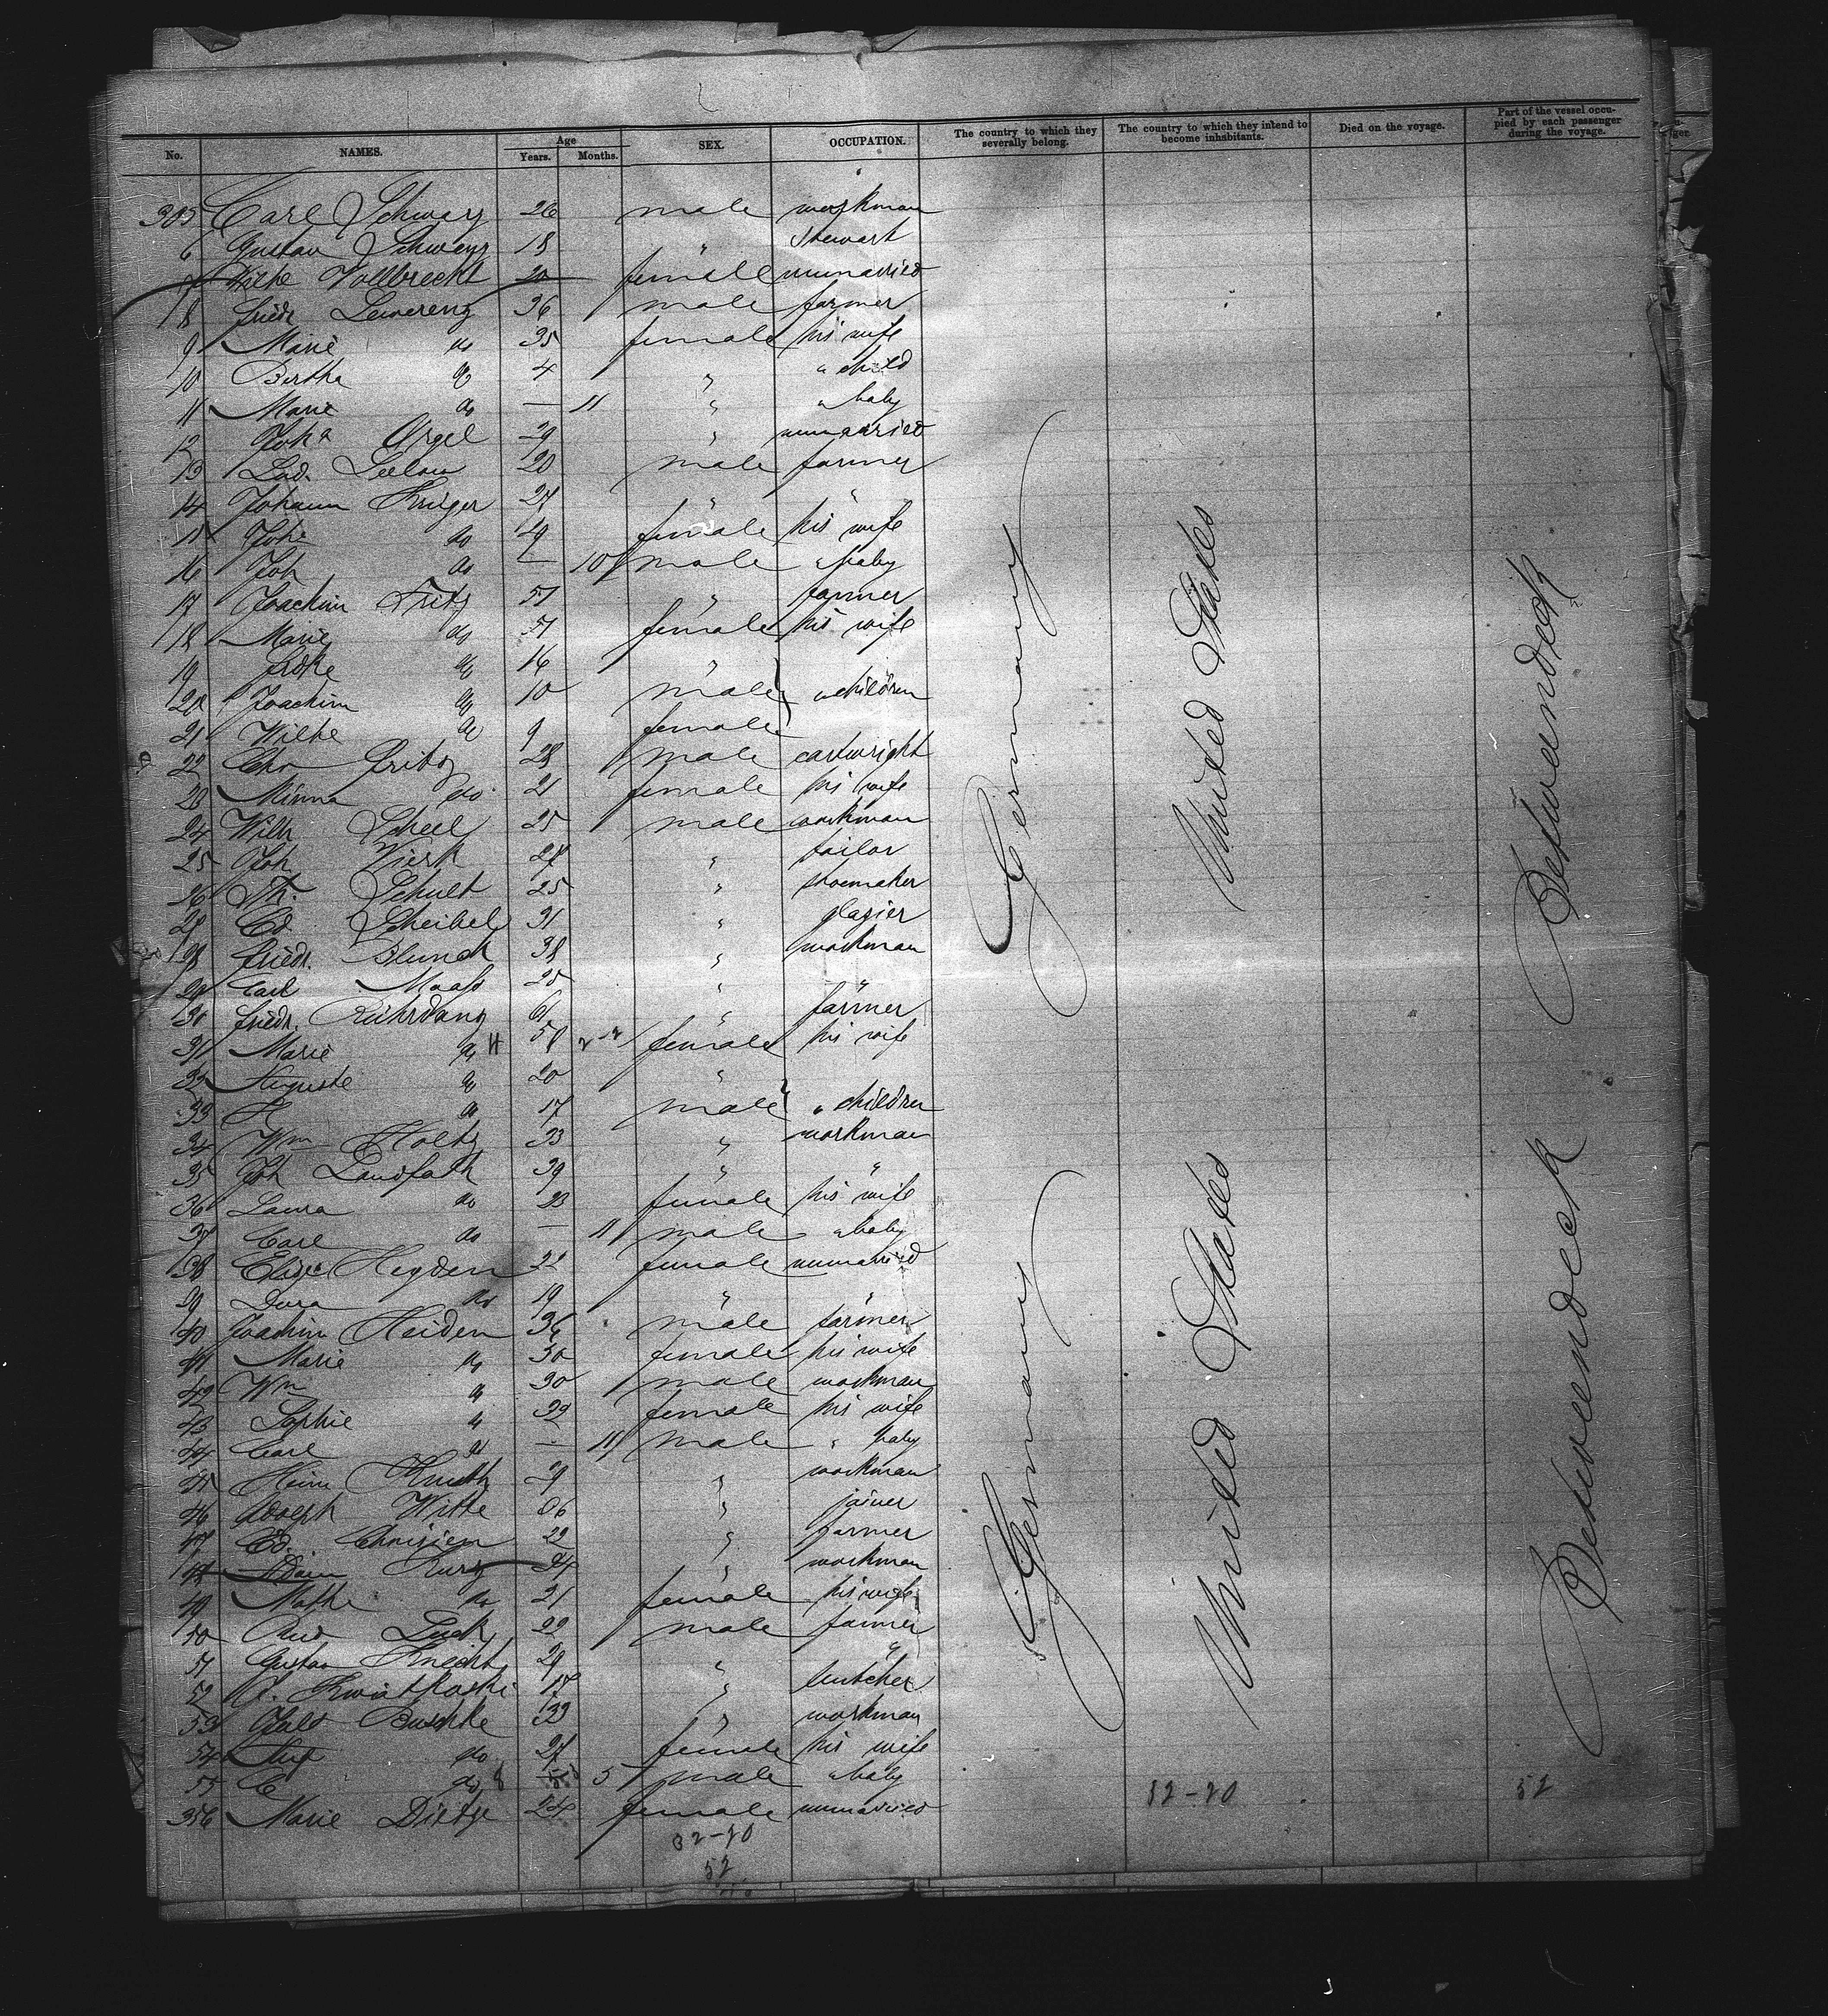 No. NAMES. Age Years. Months. SEX. OCCUPATION. The country to which they severally belong. The country to which they intend to become inhabitants. Died on the voyage. Part of the vessel occupied by each passenger during the voyage.
305 Carl Schwarz 26 male workman
6 Gustav Schwarz 18 " stewart
7 Wilhe Vollbrecht 20 female unmarried
8 Friedr Lewerenz 36 male farmer
9 Marie do 35 female his wife
10 Bertha do 4 " " child
11 Marie do — 11 " " baby
12 Joha Orgel 29 " unmarried
13 Lud. Seelow 20 male farmer
14 Johann Krüger 27 " "
15 Johe do 29 female his wife
16 Joh do — 10 male " baby
17 Joachim Fritz 51 " farmer
18 Marie do 51 female his wife
19 Fridke do 16 "
20 Joachim do 10 male " children
21 Wilhe do 9 female
22 Chr Fritz 28 male cartwright
23 Minna do 21 female his wife
24 Wilh Scheel 25 male workman
25 Joh Vierk 27 " tailor
26 Th. Schult 25 " shoemaker
27 Ed. Scheibel 31 " glazier
28 Friedr. Blunck 38 " workman
29 Carl Maass 25 " "
30 Friedr. Rührdanz 61 " farmer
31 Marie do 58 female his wife
32 Auguste do 20 "
33 H do 17 male " children
34 Wm Holtz 33 " workman
35 Joh Landfath 39 " "
36 Laura do 23 female his wife
37 Carl do — 11 male " baby
38 Elise Heyden 22 female unmarried
39 Dora do 19 " "
40 Joachim Heiden 36 male farmer
41 Marie do 30 female his wife
42 Wm do 30 male workman
43 Sophie do 32 female his wife
44 Carl do — 11 male " baby
45 Heinr Knuth 29 " workman
46 Adolph Witte 26 " joiner
47 Ed. 22 " farmer
48 Adam Kurz 24 " workman
49 Mathe do 21 female his wife
50 Rud Luck 22 male farmer
51 Gustav Knecht 29 " "
52 A. Kwiatkoski 17 " butcher
53 Buschke 33 " workman
54 do 27 female his wife
55 C do 5 male " baby
356 Marie Dietze 24 female unmarried
32-20
52
Germany
Germany
United States
United States
32-20
Betweendeck
Betweendeck
52